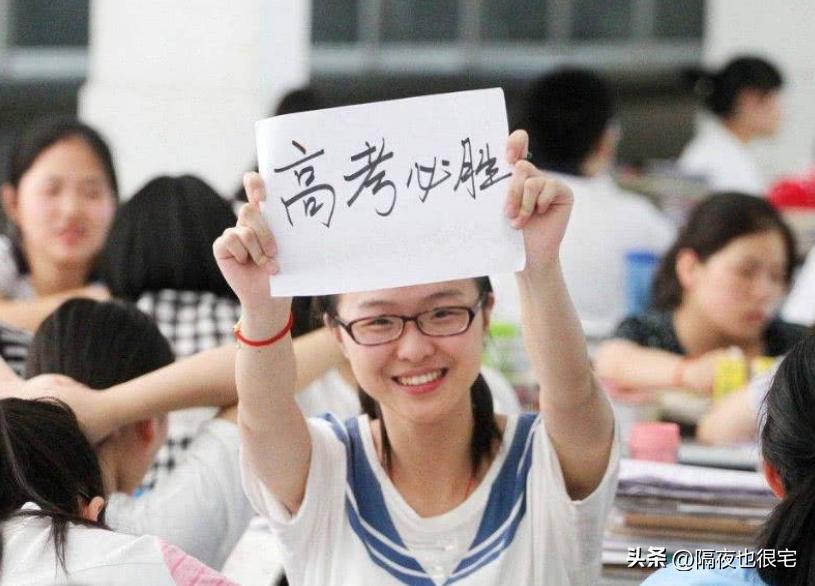 高考必胜
头条 @隔夜也很宅